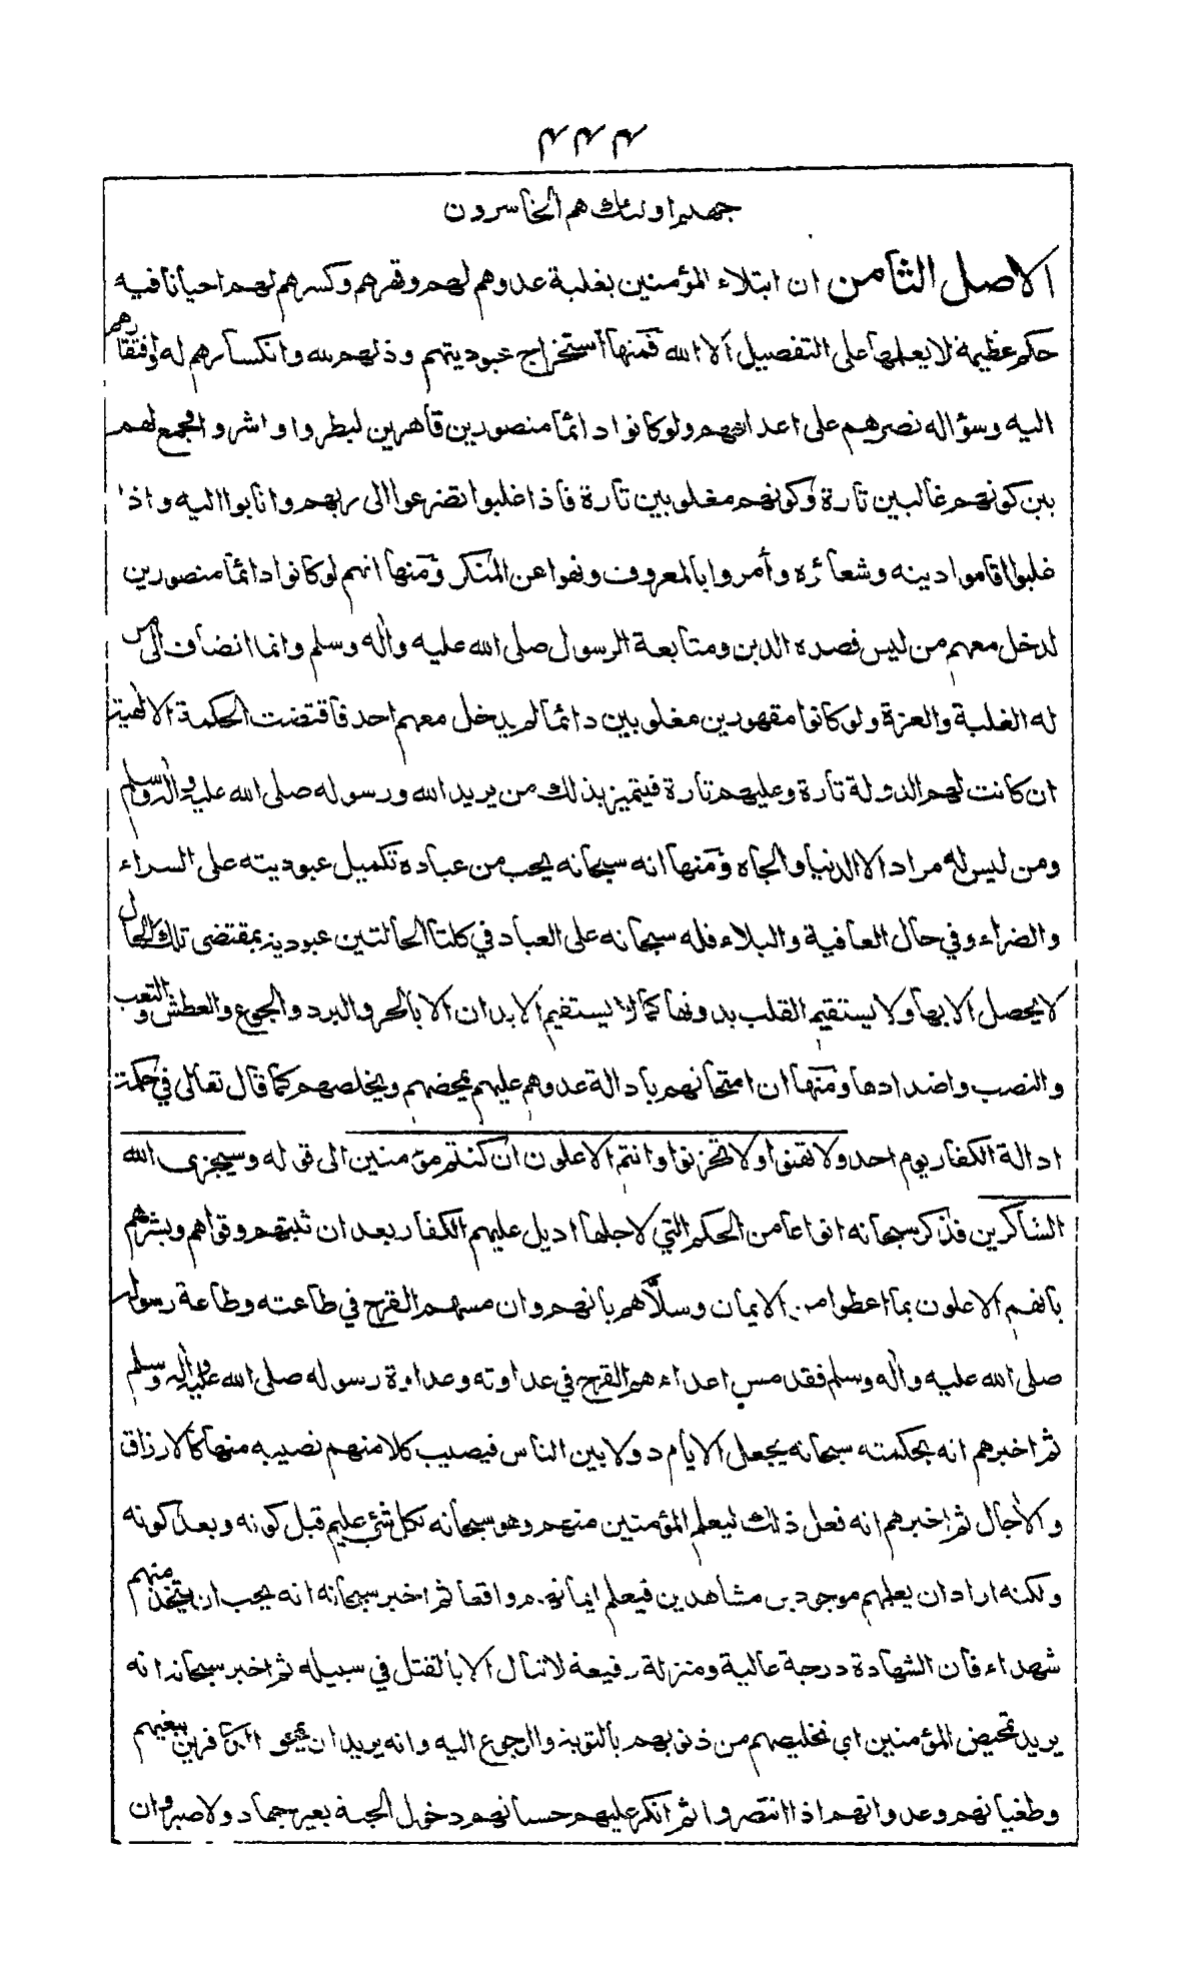 ٣٣٣
جهنم اولئك هم الخاسرون
الاصل الثامن ان ابتلاء المؤمنين بغلبة عدوهم لهم وقهرهم وكسرهم لهم احيانا فيه
حكم عظيمة لا يعلمها على التفصيل الا الله فمنها استخراج عبوديتهم وذلهم لله وانكسارهم له وافتقارهم
اليه وسؤاله نصرهم على اعدائهم ولو كانوا دائما منصورين قاهرين لبطروا واشروا فجمع لهم
بين كونهم غالبين تارة وكونهم مغلوبين تارة فاذا غلبوا تضرعوا الى ربهم وانابوا اليه واذا
غلبوا اقاموا دينه وشعائره وأمروا بالمعروف ونهوا عن المنكر ومنها انهم لو كانوا دائما منصورين
لدخل معهم من ليس قصده الدين ومتابعة الرسول صلى الله عليه وآله وسلم وانما انضاف الى من
له الغلبة والعزة ولو كانوا مقهورين مغلوبين دائما لم يدخل معهم احد فاقتضت الحكمة الالهية
ان كانت لهم الدولة تارة وعليهم تارة فيتميز بذلك من يريد الله ورسوله صلى الله عليه وآله وسلم
ومن ليس له مراد الا الدنيا والجاه ومنها انه سبحانه يحب من عباده تكميل عبوديته على السراء
والضراء وفي حال العافية والبلاء فلله سبحانه على العباد في كلتا الحالتين عبودية بمقتضى تلك الحال
لا يحصل الا بها ولا يستقيم القلب بدونها كما لا يستقيم الابدان الا بالحر والبرد والجوع والعطش والتعب
والنصب واضدادها ومنها ان امتحانهم بادالة عدوهم عليهم يمحضهم ويخلصهم كما قال تعالى في حكمة
ادالة الكفار يوم احد ولا تهنوا ولا تحزنوا وانتم الاعلون ان كنتم مؤمنين الى قوله وسيجزى الله
الشاكرين فذكر سبحانه انواعا من الحكم التي لاجلها اديل عليهم الكفار بعد ان ثبتهم وقواهم وبشرهم
بانهم الاعلون بما اعطوا من الايمان وسلّاهم بانهم وان مسهم القرح في طاعته وطاعة رسوله
صلى الله عليه وآله وسلم فقد مس اعداءهم القرح في عداوته وعداوة رسوله صلى الله عليه وآله وسلم
ثم اخبرهم انه بحكمته سبحانه يجعل الايام دولا بين الناس فيصيب كلا منهم نصيبه منها كالارزاق
والآجال ثم اخبرهم انه فعل ذلك ليعلم المؤمنين منهم وهو سبحانه بكل شئ عليم قبل كونه وبعد كونه
ولكنه اراد ان يعلمهم موجودين مشاهدين فيعلم ايمانهم واقعا ثم اخبر سبحانه انه يحب ان يتخذ منهم
شهداء فان الشهادة درجة عالية ومنزلة رفيعة لا تنال الا بالقتل في سبيله ثم اخبر سبحانه انه
يريد تمحيض المؤمنين اي تخليصهم من ذنوبهم بالتوبة والرجوع اليه وانه يريد ان يمحو الكافرين ببغيهم
وطغيانهم وعدوانهم اذا انتصروا ثم انكر عليهم حسبانهم دخول الجنة بغير جهاد ولا صبر وان